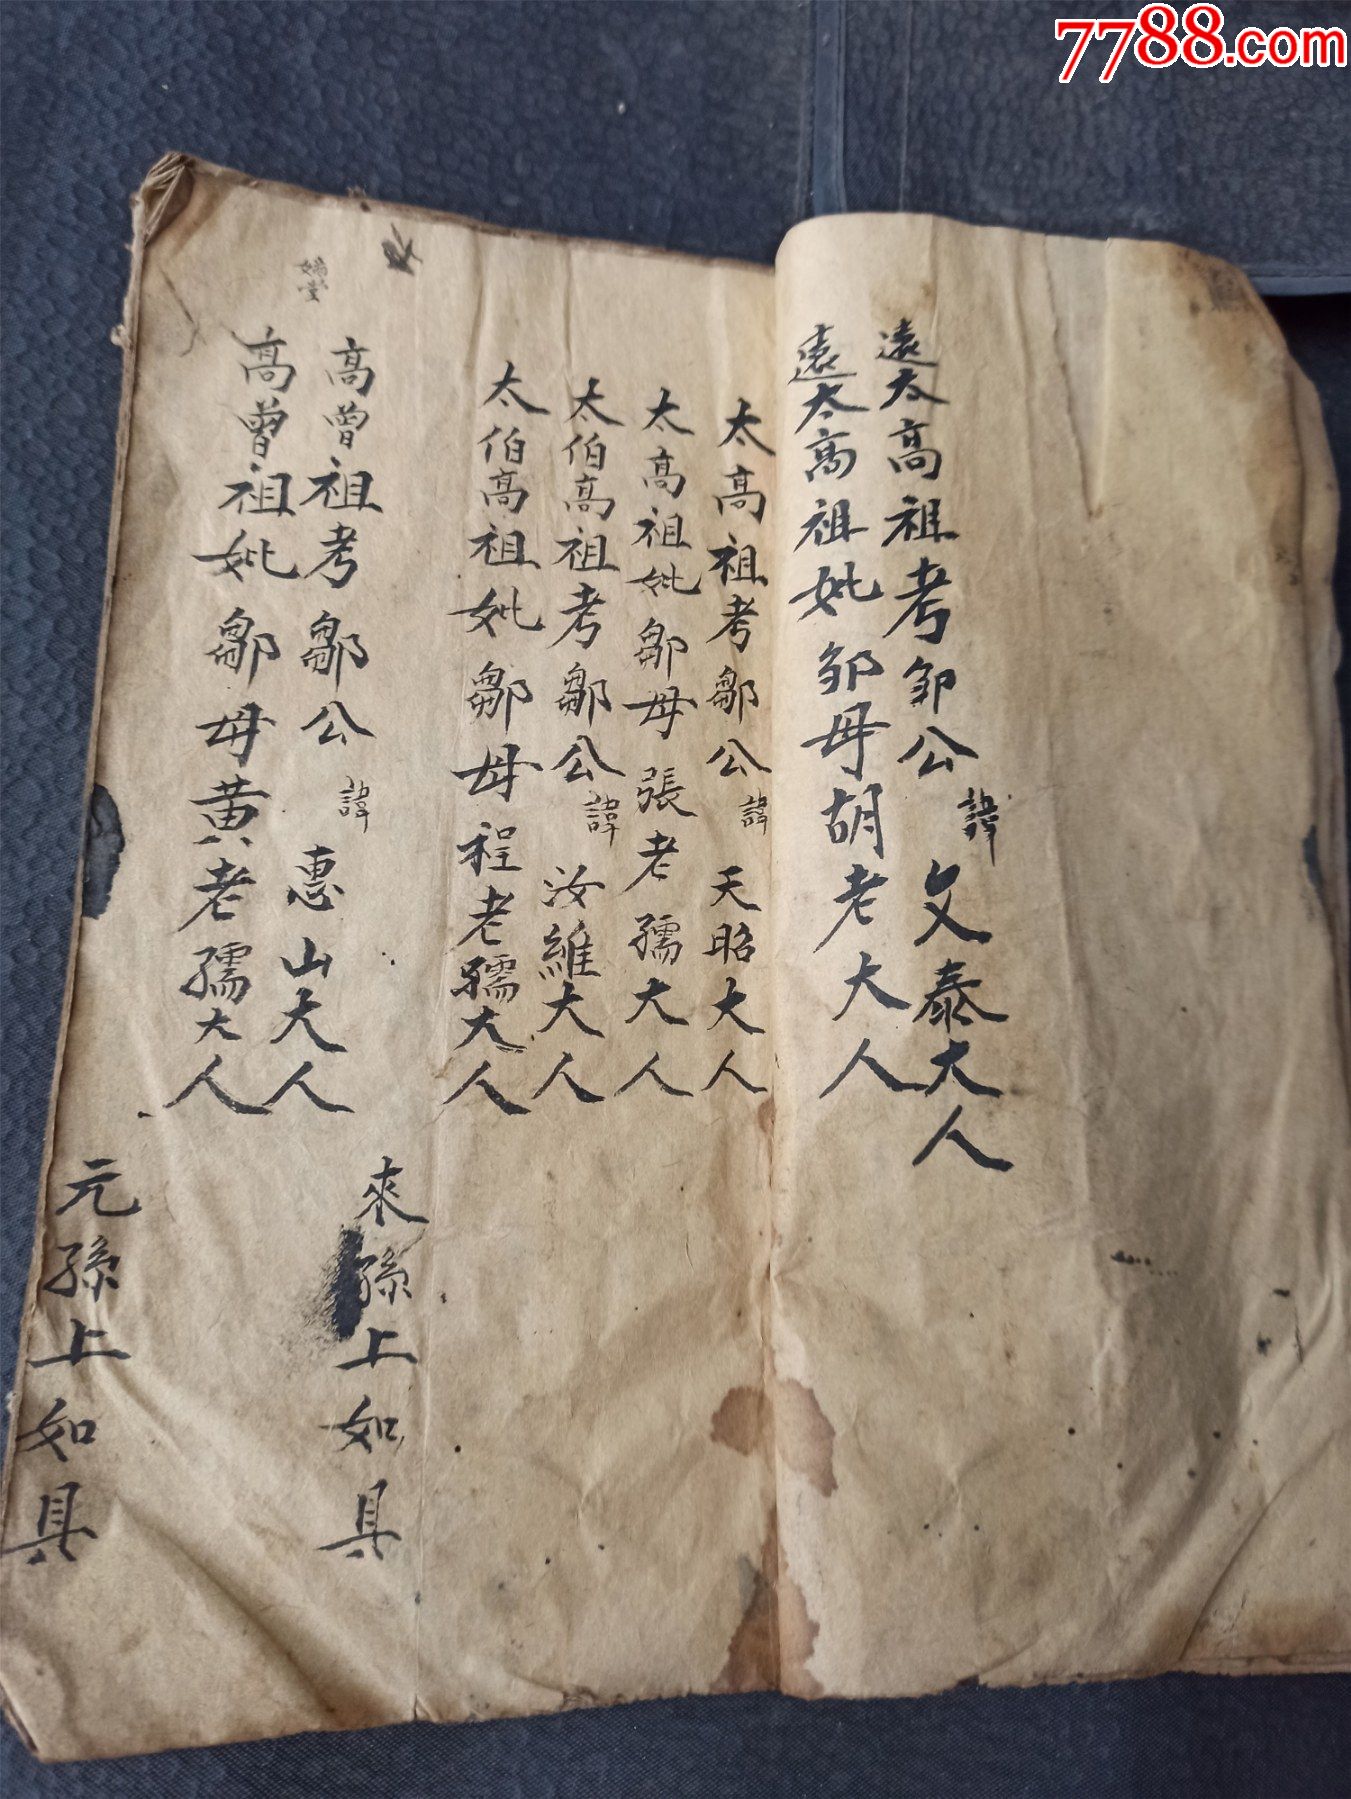 7788.com
遠太高祖考邹公諱文泰大人
遠太高祖妣邹母胡老大人
太高祖考鄒公諱天昭大人
太高祖妣鄒母張老孺大人
太伯高祖考鄒公諱汝維大人
太伯高祖妣鄒母程老孺大人
高曾祖考鄒公諱惠山大人
高曾祖妣鄒母黄老孺大人
來孫上如具
元孫上如具